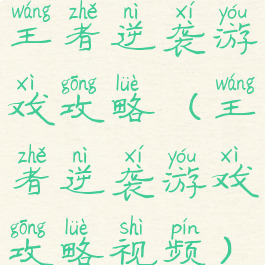 wáng zhě nì xí yóu
王者逆袭游
xì gōng lüè wáng
戏攻略（王
zhě nì xí yóu xì
者逆袭游戏
gōng lüè shì pín
攻略视频）